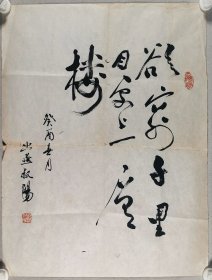 欲穷千里
目更上一层
楼
癸酉春月